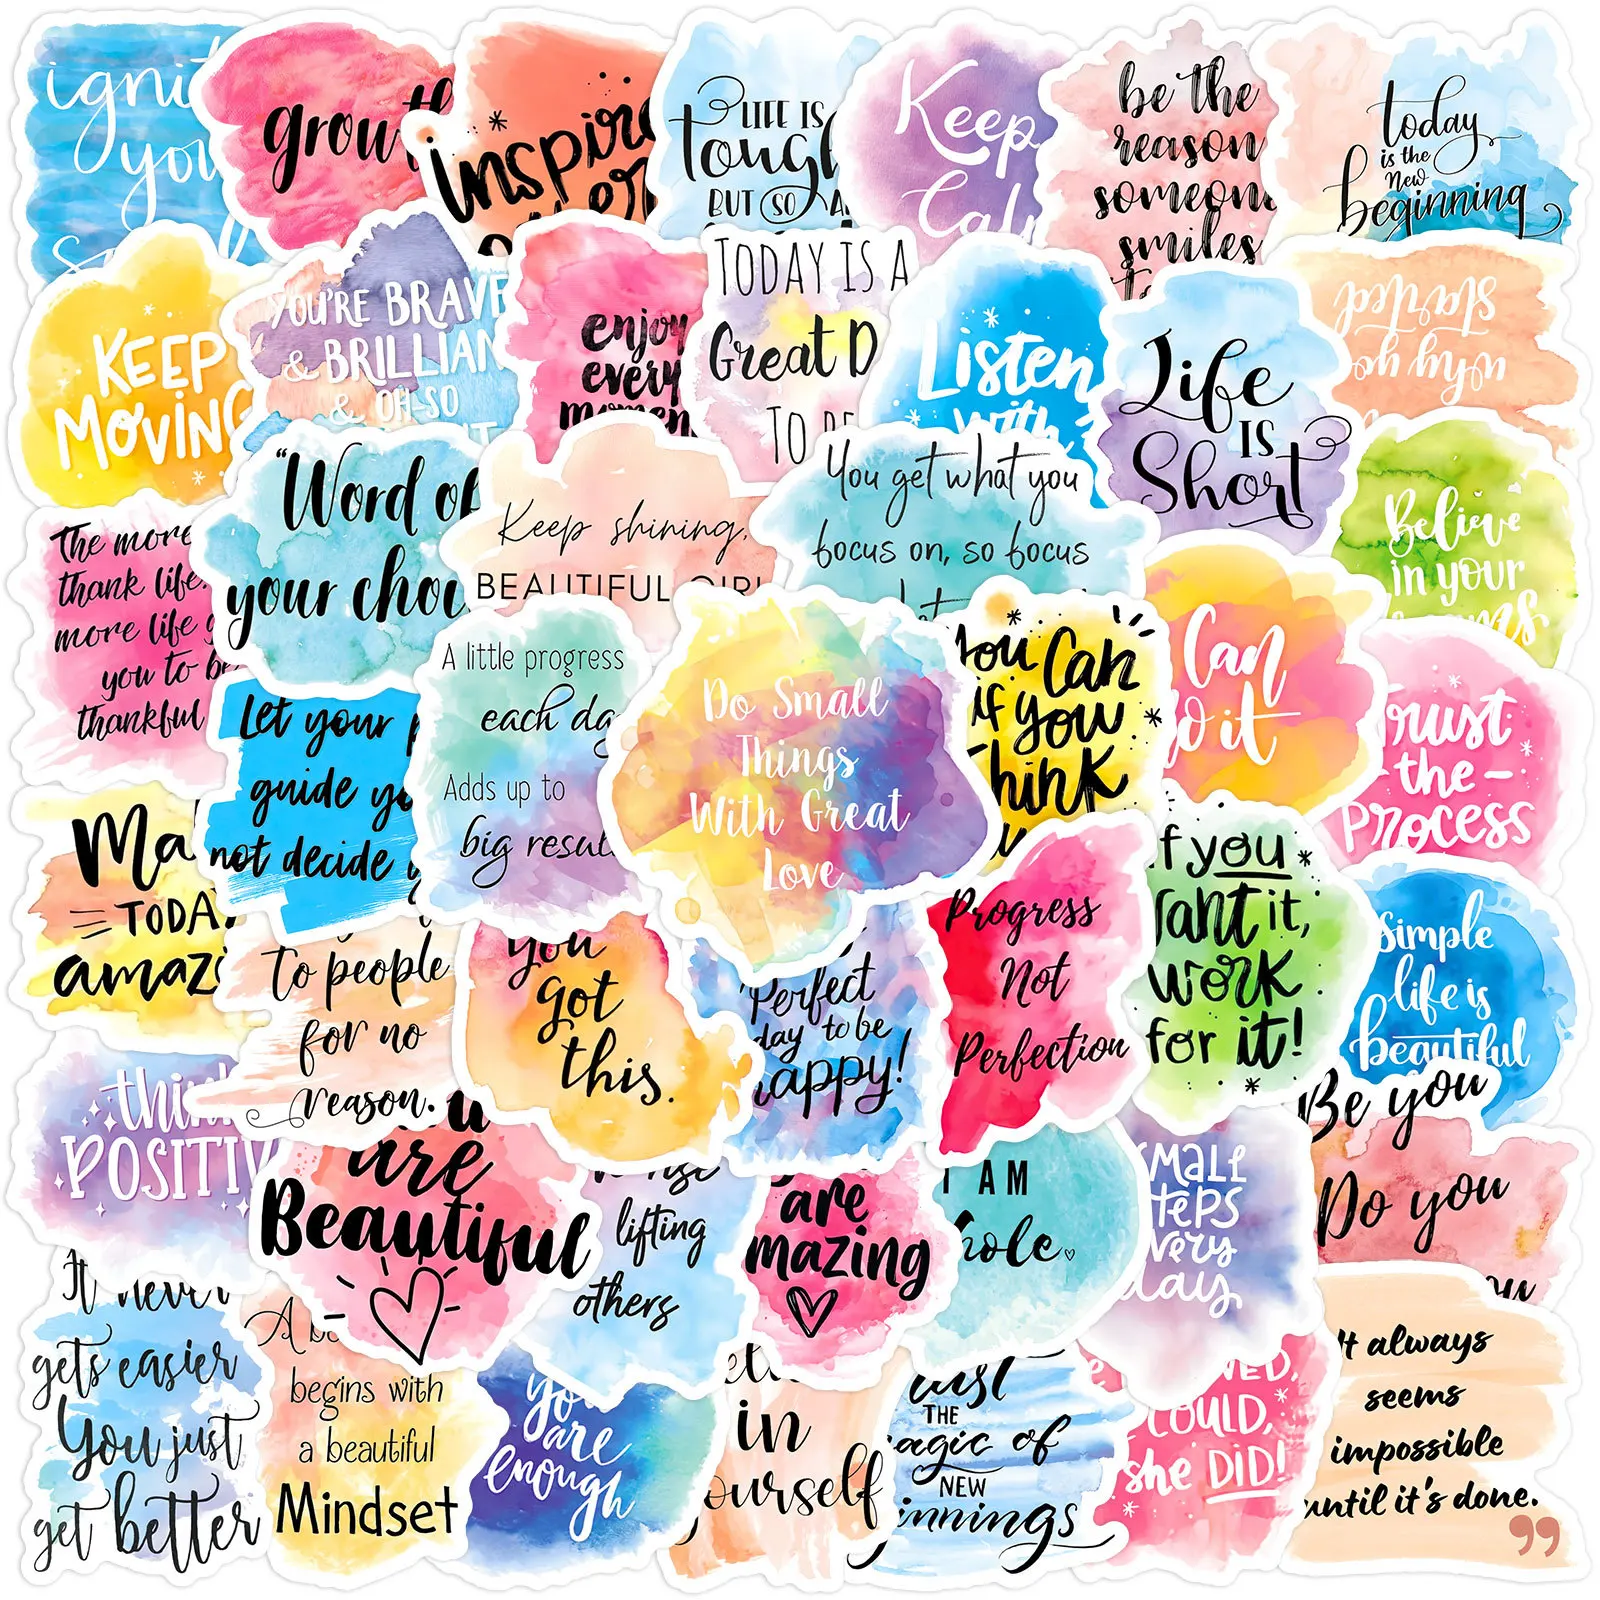 KEEP
MOVING
YOU'RE BRAVE
& BRILLIANT
& OH-SO
inspire
LIFE IS
tough
BUT SO A
Keep
Calm
be the
reason
someone
smiles
today
is the
New
beginning
growth
enjoy
every
moment
TODAY IS A
Great D
TO BE
Listen
with
Life
IS
Short
why you
started
"Word of
your choi
Keep shining,
BEAUTIFUL GIRL
You get what you
focus on, so focus
Believe
in your
The more
thank life,
more life g
you to be
thankful
Let your
guide yo
not decide
A little progress
each day
Adds up to
big results
Do Small
Things
With Great
Love
You Can
if you
think
Can
o it
Trust
-the-
Process
Ma
TODAY
amazi
To people
for no
reason.
you
got
this.
Perfect
day to be
happy!
Progress
Not
Perfection
If you
Want it,
work
for it!
Simple
life is
beautiful
think
POSITIV
are
Beautiful
lifting
others
are
amazing
I AM
whole
Small
Steps
every
day
Be you
Do you
It never
gets easier
You just
get better
A be
begins with
a beautiful
Mindset
you
are
enough
in
yourself
trust
THE
magic of
NEW
beginnings
COULD,
she DID!
It always
seems
impossible
until it's done.
”